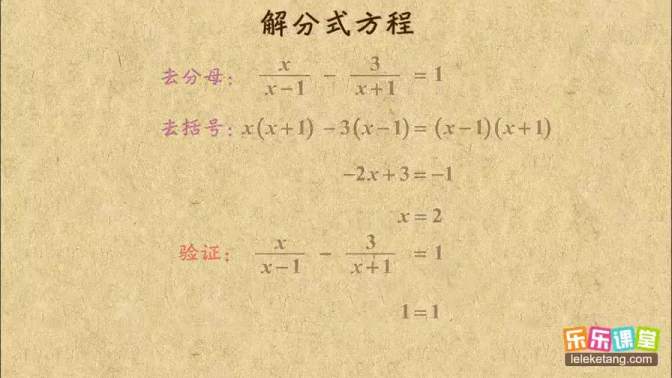 解分式方程
去分母: x/(x−1) − 3/(x+1) = 1
去括号: x(x+1) −3(x−1)= (x−1)(x+1)
−2x+3=−1
x=2
验证: x/(x−1) − 3/(x+1) = 1
1=1
乐乐课堂
leleketang.com